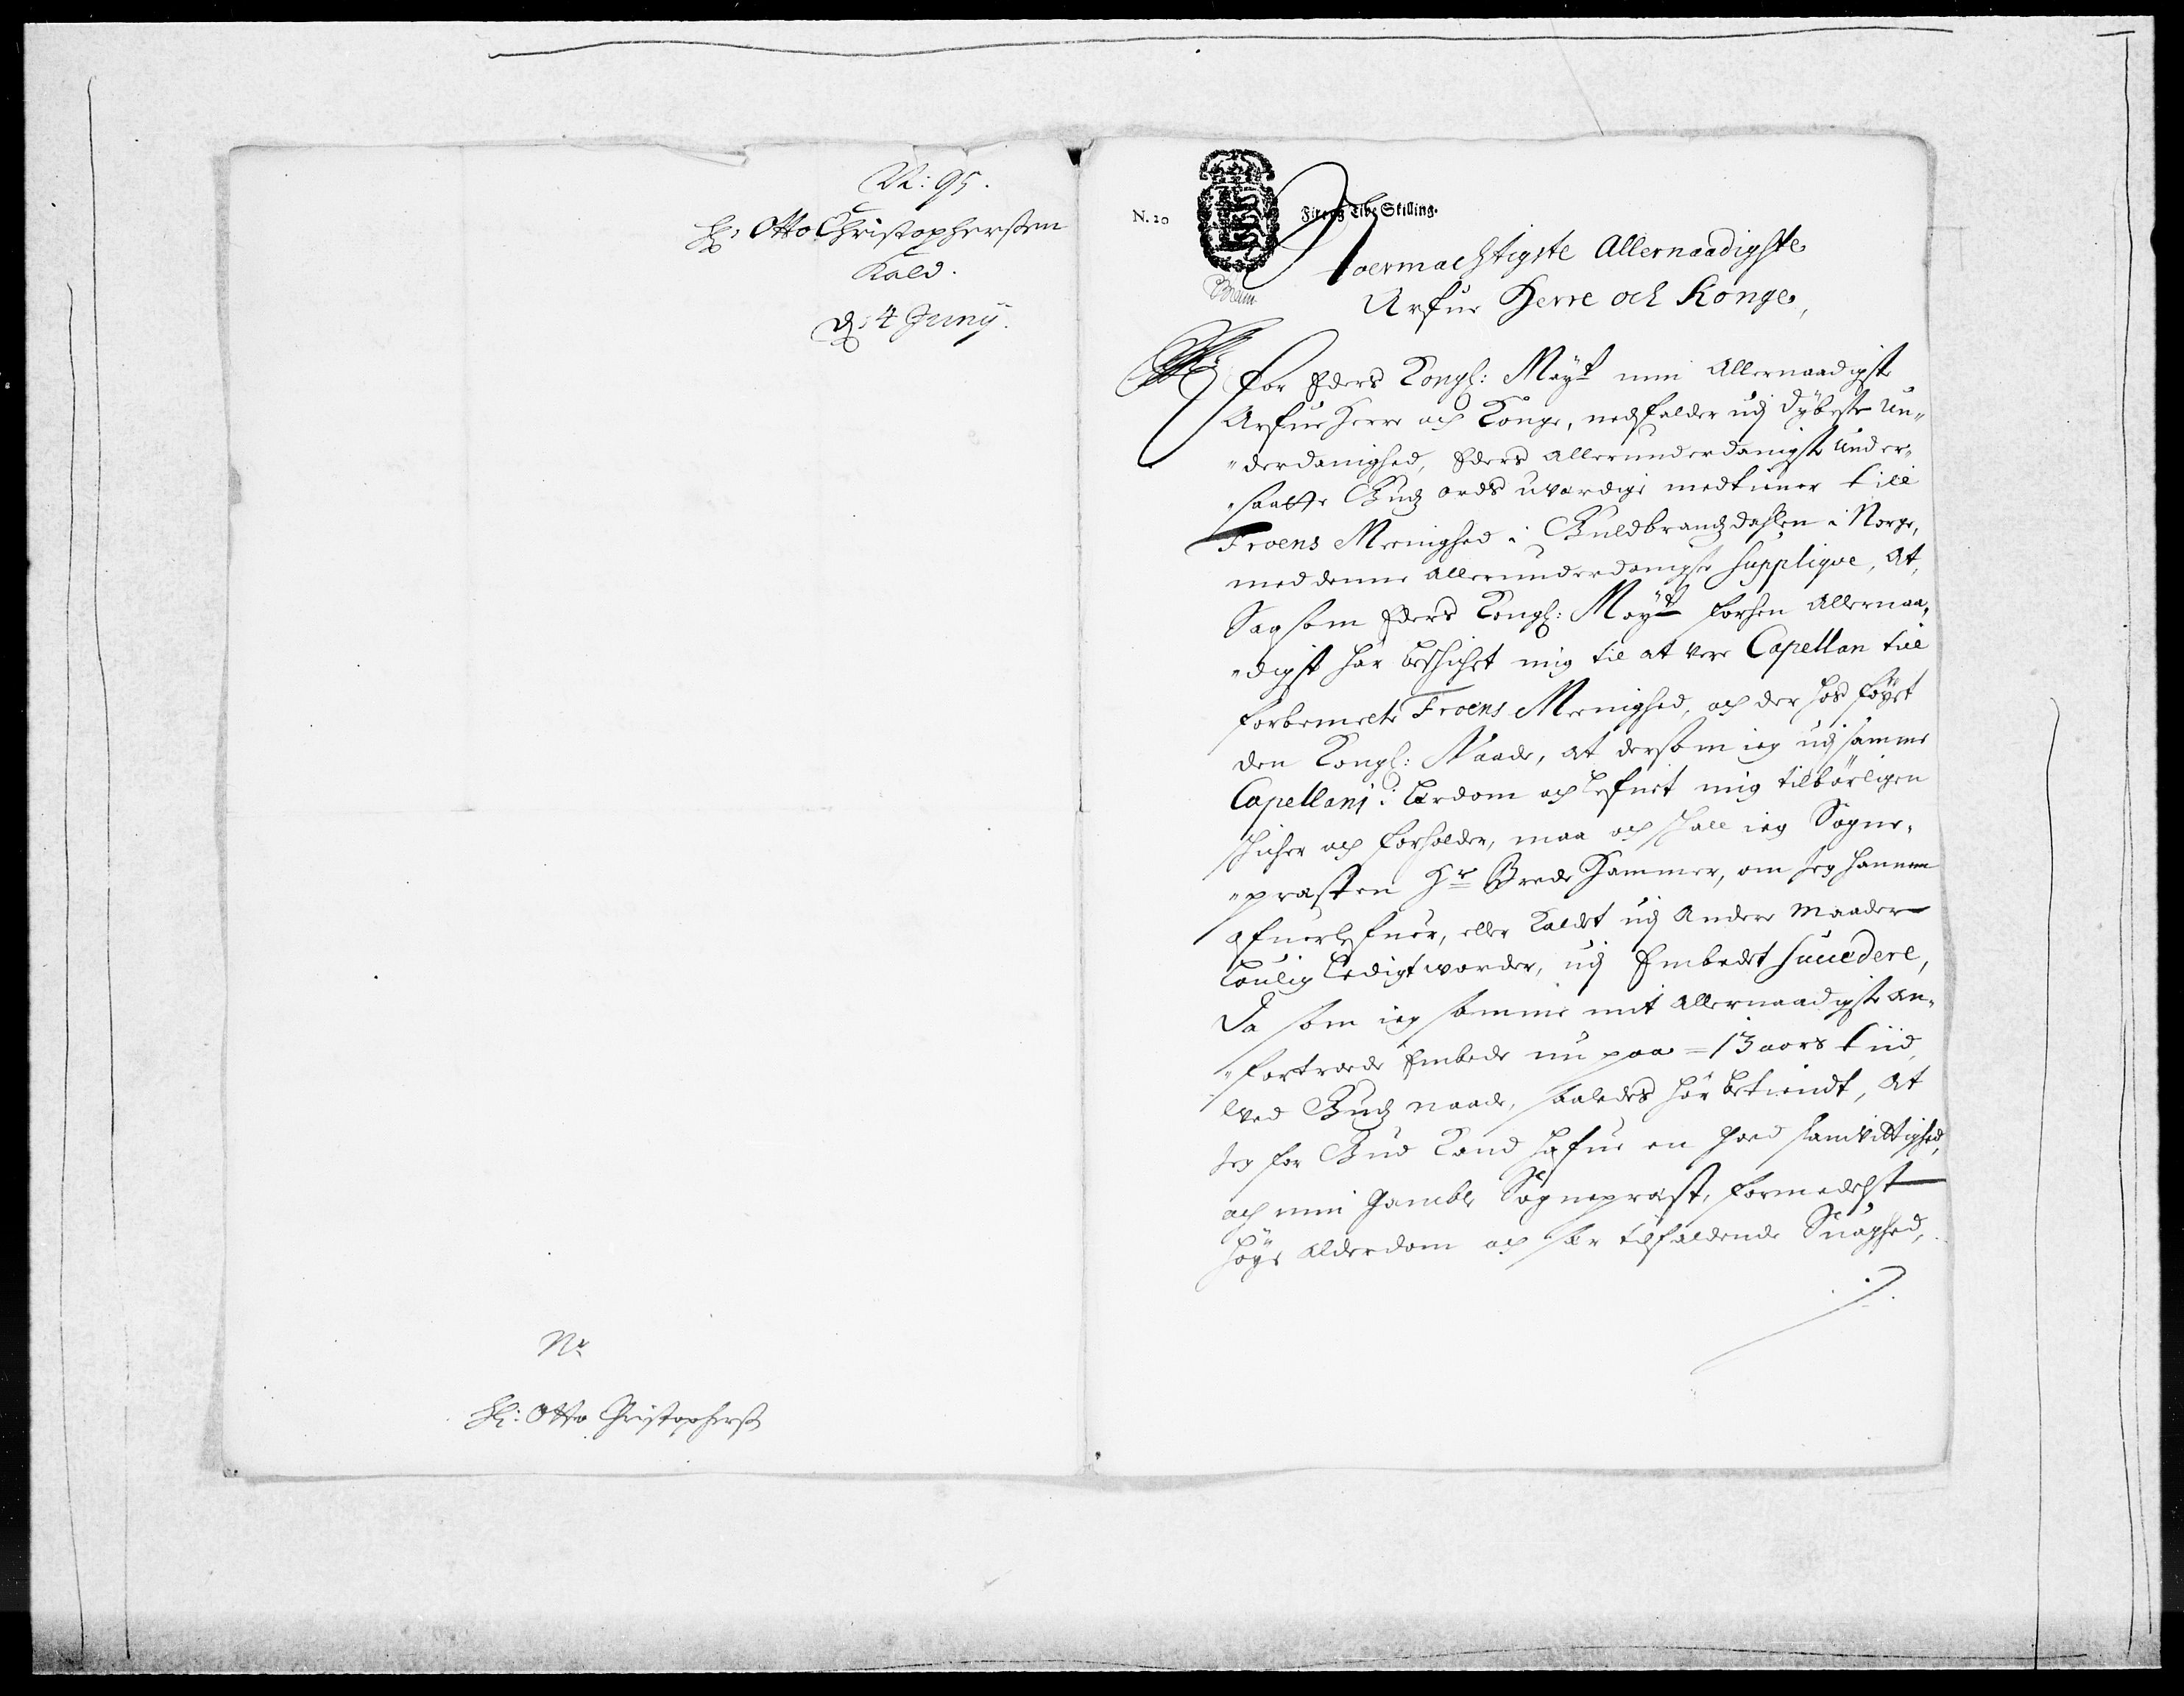 N: 95.
Hr: Otto Christophersen
Kald.
D: 4 Junij.
Nr
Hr: Otto Christophers
N. 20
Fire og Tive Skilling.
Stoermachtigste Allernaadigste
Arfue Herre och Konge,
For Eders Kongl: Mayt min Allernaadigste
Arfue Herre och Konge, nedfalder udj dybeste un„
„derdanighed, Eders allerunderdanigste under„
„saatte Gudz ords uverdige medtiener till
Froens Menighed i Guldbrandzdahlen i Norge,
med denne allerunderdanigste Supplique, At,
Saasom Eders Kongl: Mayt forhen Allernaa„
„digst har beskichet mig til at vere Capellan till
forbemelte Froens Menighed, och der hos føyet
den Kongl: Naade, at dersom ieg udj samme
Capellanj i Lerdom och Lefnet mig tilbørligen
skicher och forholder, maa och skall ieg Sogne„
„presten Hr Brede Hammer, om Jeg hannem
ofuerlefuer, eller Kaldet udj Andere Maader
louglig ledigt worder, udj Embedet succedere,
Da som ieg samme mit allernaadigste an„
„fortroede Embede nu paa = 13 aars tiid,
ved Gudz naade, saaledes har betiendt, At
Jeg for Gud Kand hafue en goed samvittighed,
och min gamble Sogneprest, formedelst
høye alderdom och stor tilfaldende Suaghed,